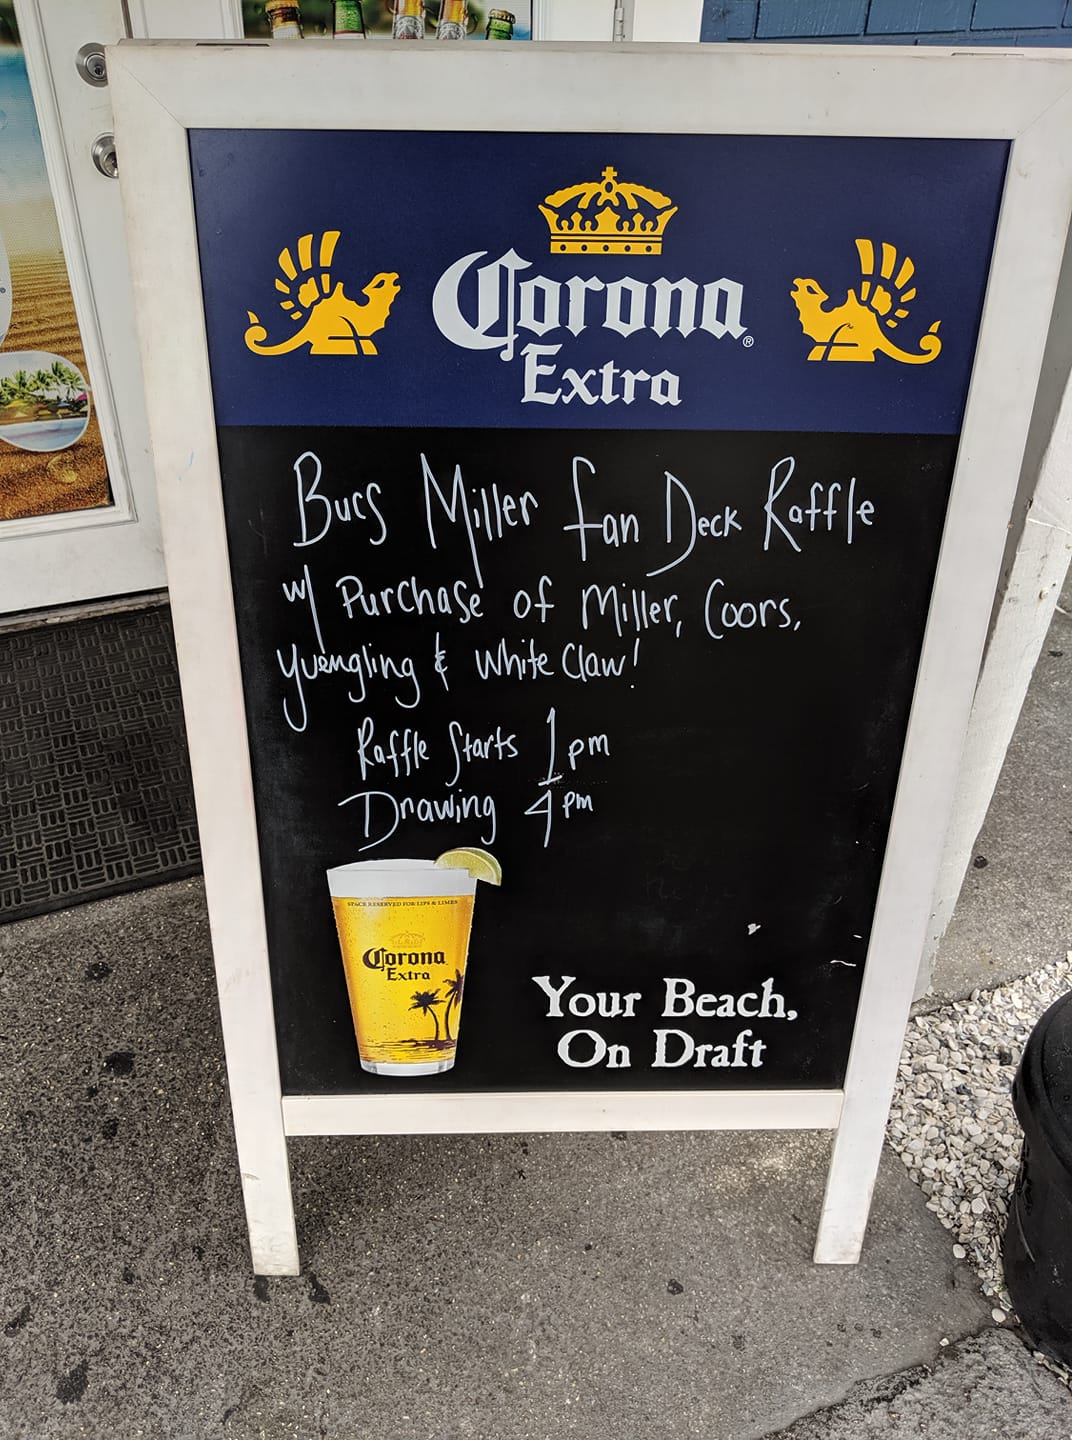 Corona®
Extra
Bucs Miller Fan Deck Raffle
w/ Purchase of Miller, Coors,
Yuengling & White Claw!
Raffle Starts 1pm
Drawing 4pm
SPACE RESERVED FOR LIPS & LIMES
Corona
Extra
Your Beach,
On Draft